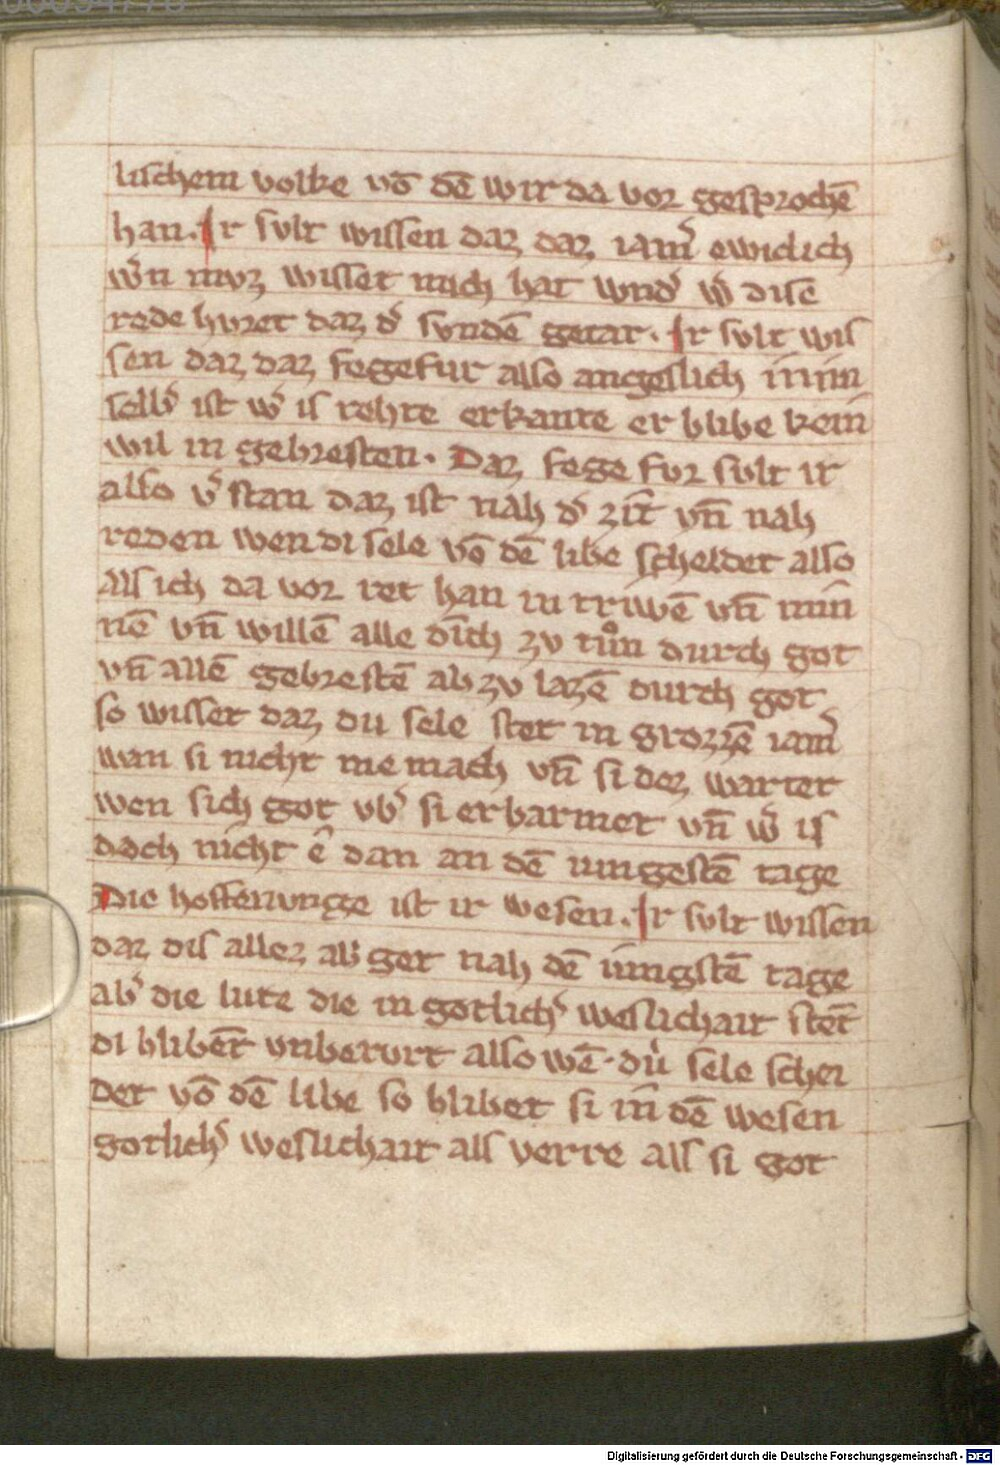 lischem volke vō dē wir da vor gesprochē
han. Ir svlt wissen daz daz iam̄ ewiclich
wn̄ mvz wisset mich hat wnd' w' dise
rede hvret daz d' svndē getar. Ir svlt wis
sen daz daz fegefur also angeslich i᷑n im
selb' ist w' is rehte erkante er blibe kein
wil in gebresten. Daz fege fvr svlt ir
also v'stan daz ist nah d' zit vn̄ nah
reden wen di sele vō dē libe scheidet also
als ich da vor ret han in triwē vn̄ min
nē vn̄ willē alle dīch zv tůn durch got
vn̄ allē gebrestē ab zv lazē durch got
so wisset daz du sele stet in grozzē iam̄
wan si nicht me mach vn̄ si dez wartet
wen sich got vb' si erbarmet vn̄ w' is
doch nicht ē dan an dē iungestē tage
Die hoffenvnge ist ir wesen. Ir svlt wissen
daz dis allez ab get nah dē iungstē tage
ab' die lute die in gotlich' weslichait stēt
di blibēt vnberurt also wē du̇ sele schei
det vō dē libe so blibet si in dē wesen
gotlich' weslichait als verre als si got
Digitalisierung gefördert durch die Deutsche Forschungsgemeinschaft - DFG